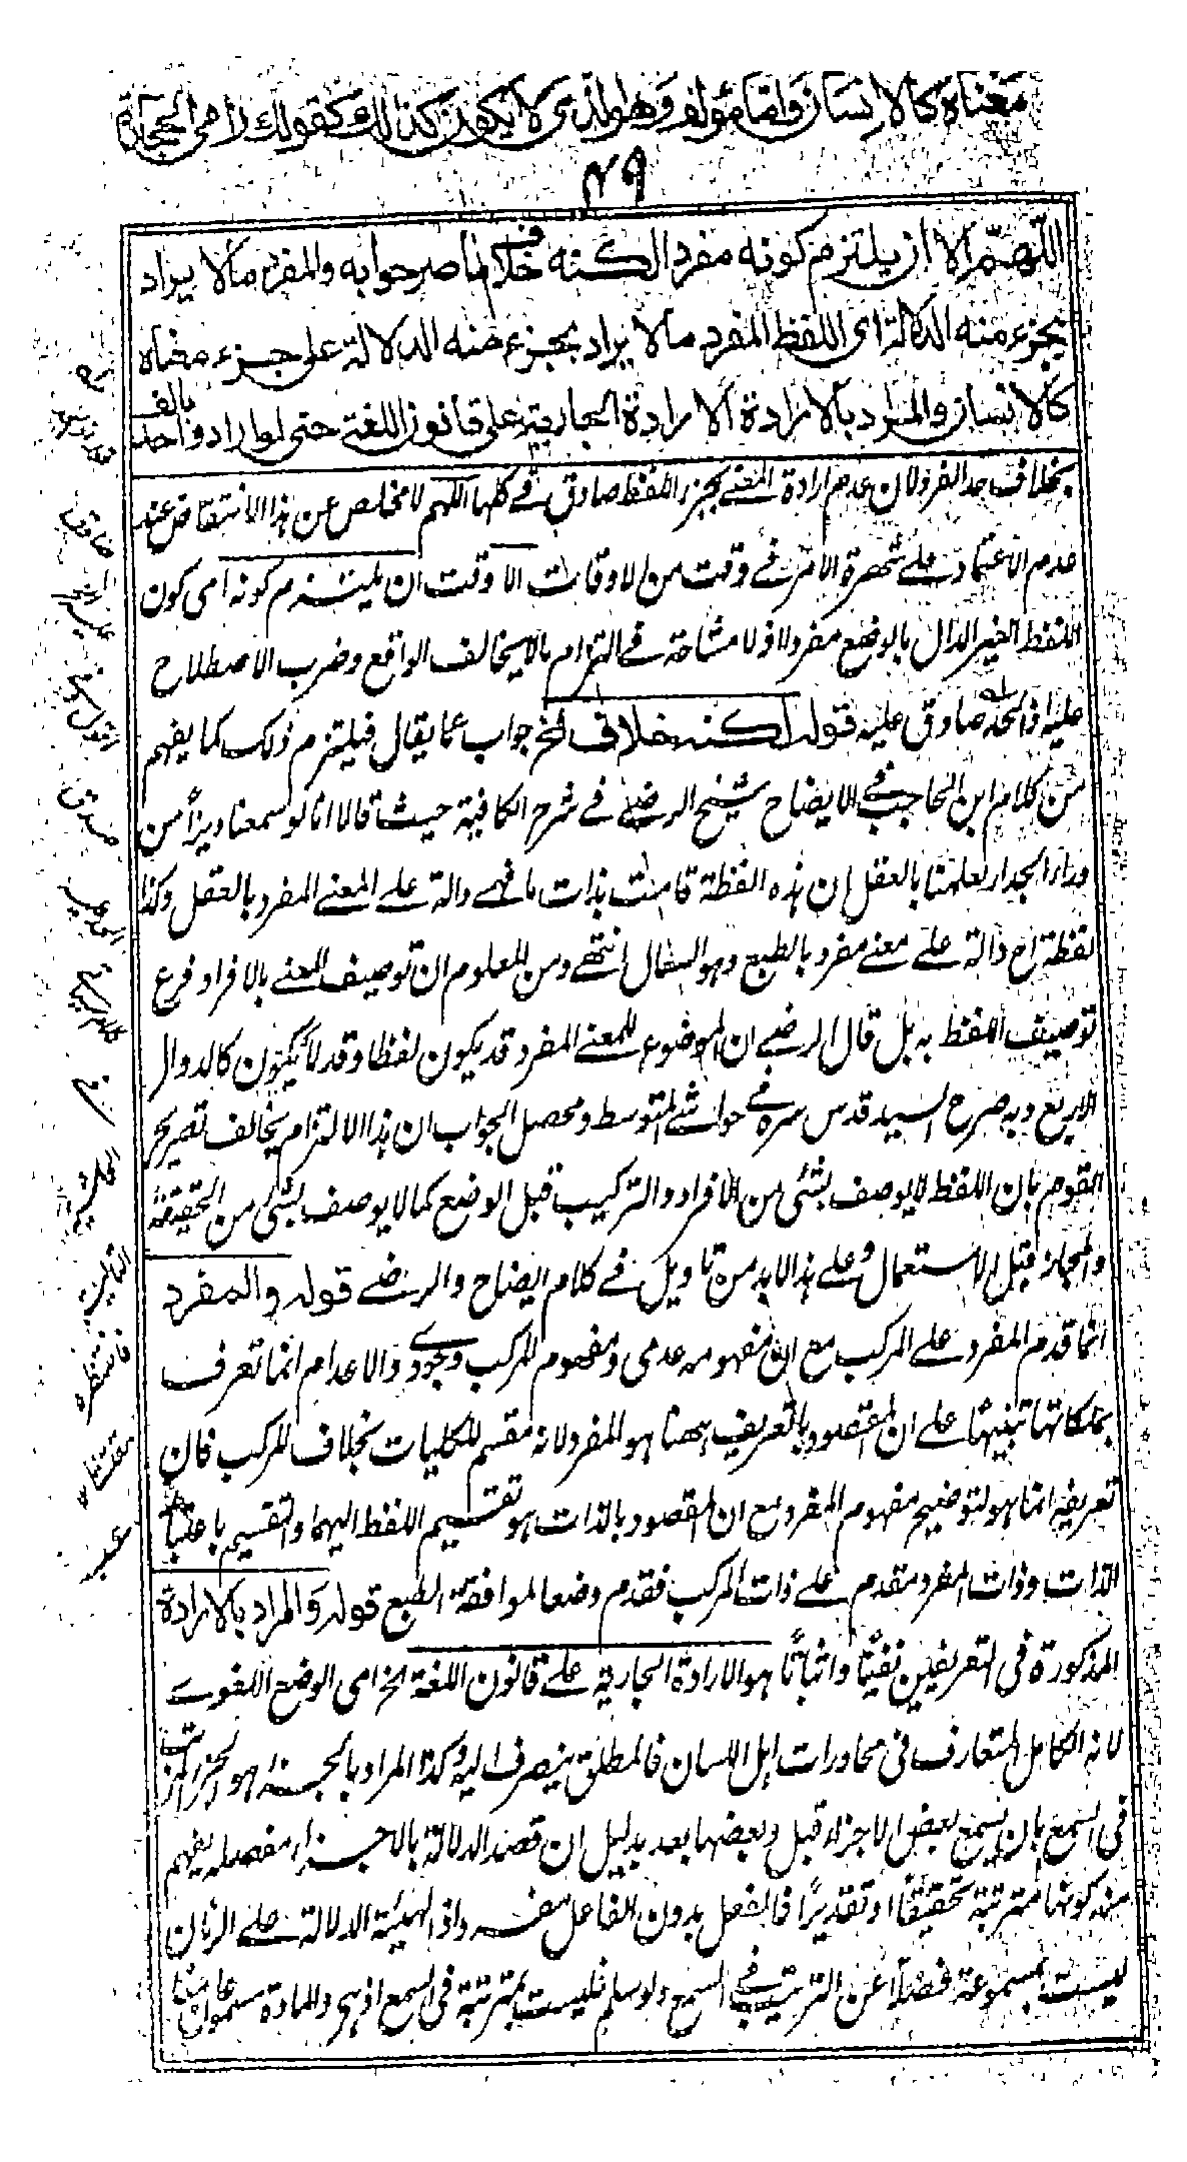 معناه كالانسان واما مؤلف وهو الذى لا يكون كذلك كقولك رامى الحجارة
٤٩
اللهم الا ان يلتزم كونه مفردا لكنه خلاف ما صرحوا به والمفرد ما لا يراد
بجزء منه الدلالة اى اللفظ المفرد ما لا يراد بجزء منه الدلالة على جزء معناه
كالانسان والمراد بالارادة الارادة الجارية على قانون اللغة حتى لو اراد واحد بالف
بخلاف حد المفرد لان عدم ارادة المعنى بجزء اللفظ صادق فى كلها اللهم لا مخلص عن هذا الانتقاض عند
عدم الاعتماد على شهرة الامر فى وقت من الاوقات الا وقت ان يلتزم كونه اى كون
اللفظ الغير الدال بالوضع مفردا ولا مشاحة فى التزام ما لا يخالف الواقع وضرب الاصطلاح
عليه اذ الحد صادق عليه قوله لكنه خلاف الخ جواب عما يقال فيلتزم ذلك كما يفهم
من كلام ابن الحاجب فى الايضاح شيخ الرضى فى شرح الكافية حيث قالا انا لو سمعنا ديزا من
وراء الجدار لعلمنا بالعقل ان هذه اللفظة قامت بذات ما فهى دالة على المعنى المفرد بالعقل وكذا
لفظة اح دالة على معنى مفرد بالطبع وهو السعال انتهى ومن المعلوم ان توصيف المعنى بالافراد فرع
توصيف اللفظ به بل قال الرضى ان الموضوع للمعنى المفرد قد يكون لفظا وقد لا يكون كالدوال
الاربع وبه صرح السيد قدس سره فى حواشى المتوسط ومحصل الجواب ان هذا الالتزام يخالف تصريح
القوم بان اللفظ لا يوصف بشئ من الافراد والتركيب قبل الوضع كما لا يوصف بشئ من الحقيقة
والمجاز قبل الاستعمال وعلى هذا لا بد من تاويل فى كلام ايضاح والرضى قوله والمفرد
انما قدم المفرد على المركب مع ان مفهومه عدمى ومفهوم المركب وجودى والاعدام انما تعرف
بملكاتها تنبيها على ان المقصود بالتعريف ههنا هو المفرد لانه مقسم للكليات بخلاف المركب فان
تعريفه انما هو لتوضيح مفهوم المفرد مع ان المقصود بالذات هو تقسيم اللفظ اليهما والتقسيم باعتبار
الذات وذات المفرد مقدم على ذات المركب فقدم وضعا لموافقة الطبع قوله والمراد بالارادة
المذكورة فى التعريفين نفيا واثباتا هو الارادة الجارية على قانون اللغة الخ اى الوضع اللغوى
لانه الكامل المتعارف فى محاورات اهل اللسان فالمطلق ينصرف اليه وكذا المراد بالجزء هو الجزء المرتب
فى السمع بان يسمع بعض الاجزاء قبل وبعضها بعد بدليل ان قصد الدلالة بالاجزاء مفصلة يفهم
منه كونها مترتبة تحقيقا او تقديرا فالفعل بدون الفاعل مفرد اذ الهيئة الدالة على الزمان
ليست بمسموعة فضلا عن الترتيب فى السمع ولو سلم فليست بمترتبة فى السمع اذ هى والمادة مسموعان معا